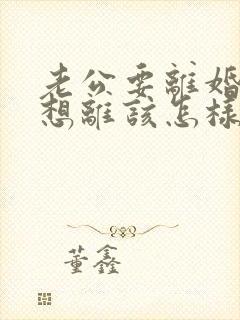 老公要離婚
想離該怎樣
董鑫